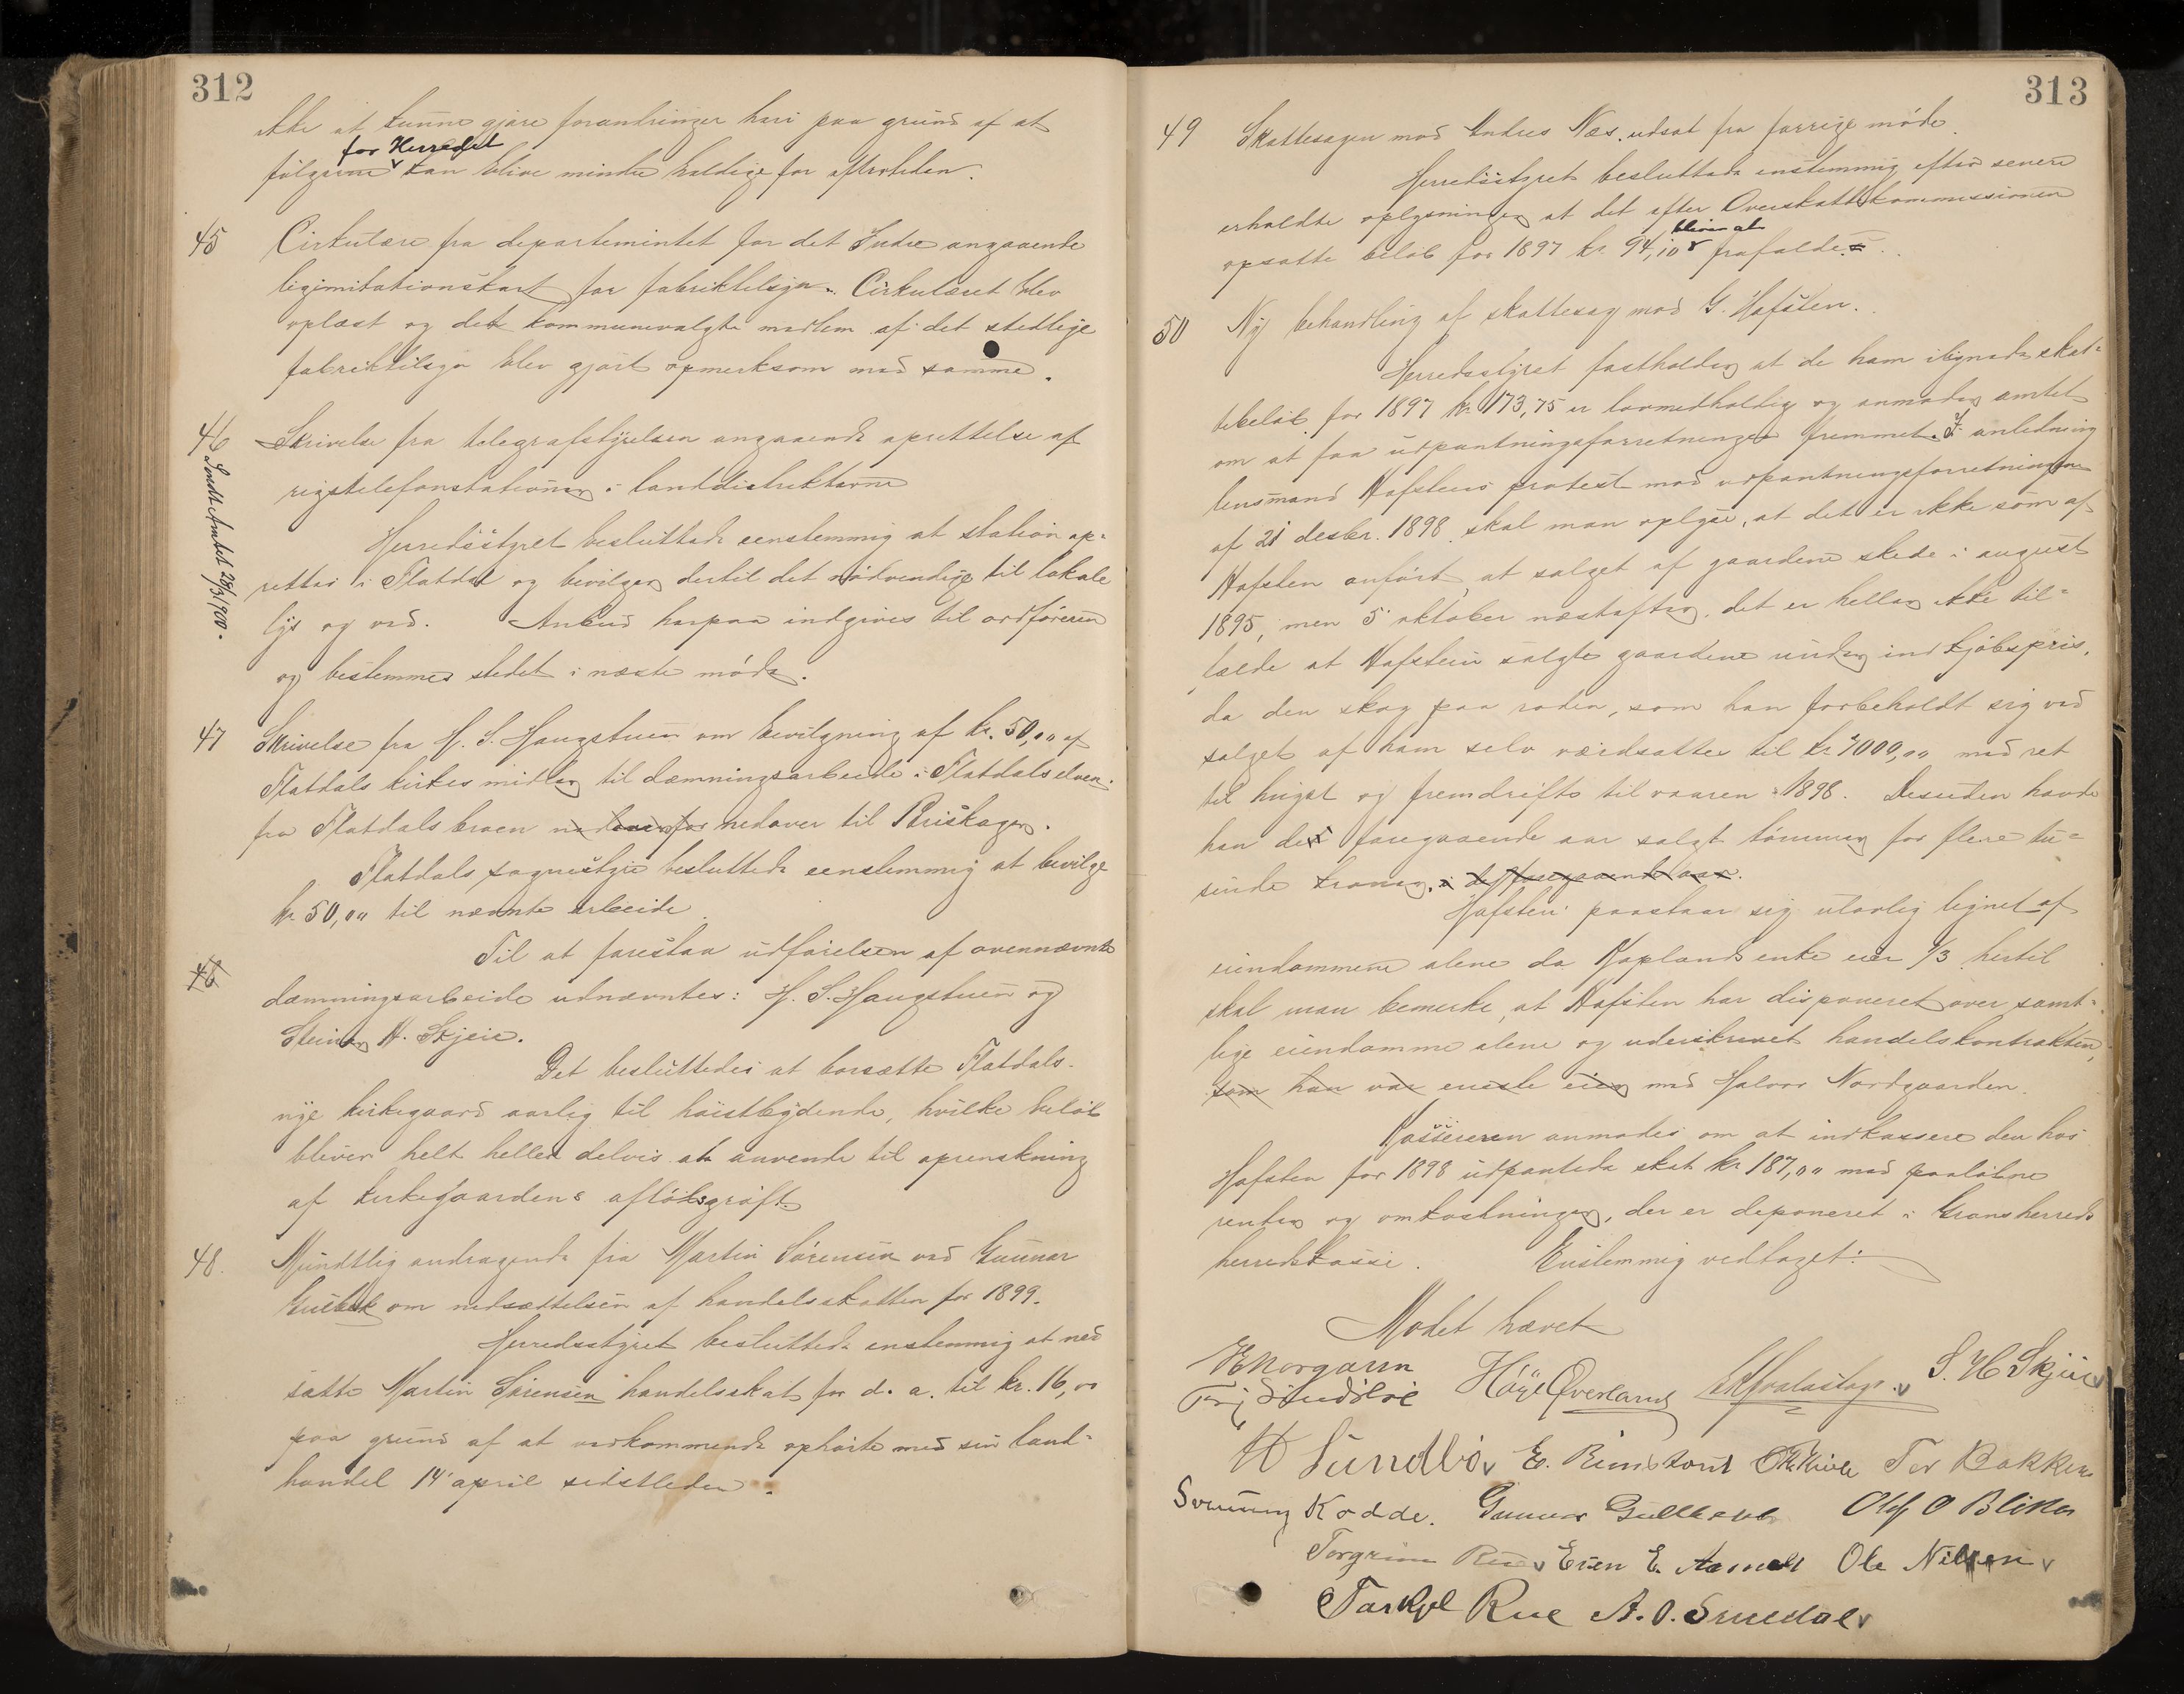 312
ikke at kunne gjøre forandringer heri paa grund af at
for Herredet
følgerne kan blive mindre heldige for eftertiden.
45 Cirkulære fra departementet for det Indre angaaende
legimitationskort for fabriktilsyn. Cirkulæret blev
oplæst og det kommunevalgte medlem af det stedlige
fabriktilsyn blev gjort opmerksom med samme.
46 Skrivelse fra telegrafstyrelsen angaaende oprettelse af
rigstelefonstationer i landdistrikterne
Sendt Amtet 28/3 1900.
Herredsstyret besluttede eenstemmig at station op=
rettes i Flatdal og bevilger dertil det nødvendige til lokale
lys og ved. Anbud herpaa indgives til ordføreren
og bestemmes stedet i næste møde.
47 Skrivelse fra H. S. Haugstuen om bevilgning af kr. 50,00 af
Flatdals kirkes midler til dæmningsarbeide i Flatdalselven
fra Flatdalsbroen nedover til Priskager.
Flatdals sognestyre besluttede eenstemmig at bevilge
kr. 50,00 til nævnte arbeide.
Til at forestaa udførelsen af ovennævnte
48
dæmningsarbeide udnævntes: H. S. Haugstuen og
Steinar H. Skjeie.
Det besluttedes at borsætte Flatdals
nye kirkegaard aarlig til høistbydende, hvilke beløb
bliver helt heller delvis at anvende til oprenskning
af kirkegaardens afløbsgrøft
48. Mundtlig andragende fra Martin Sørensen ved Gunnar
Gulbek om nedsættelsen af handelsskatten for 1899.
Herredsstyret besluttede enstemmig at ned
sætte Martin Sørensen handelsskat for d. a. til kr. 16,00
paa grund af at vedkommende ophørte med sin land=
handel 14 april sidstleden.
313
49 Skattesagen mod Andres Næs. udsat fra forrige møde.
Herredsstyret besluttede enstemmig efter senere
erholdte oplysninger at det efter Overskattekommissionen
bliver at
opsatte beløb for 1897 kr. 94,10 frafalde.
50 Ny behandling af skattesag mod G. Hafsten.
Herredsstyret fastholder at de ham ilignede skat=
tebeløb for 1897 kr. 173,75 er lovmedholdig og anmoder amtet
om at faa udpantningsforretningen fremmet. I anledning
lensmand Hafstens protest mod udpantningsforretningen
af 21 desbr. 1898 skal man oplyse, at det er ikke som af
Hafsten anført, at salget af gaardene skede i august
1895, men 5 oktober næstefter, det er heller ikke til=
fælde at Hafsten solgte gaardene under indkjøbspris,
da den skog paa roden, som han forbeholdt sig ved
salget af ham selv værdsattes til kr. 4000,00 med ret
til hugst og fremdrift til vaaren 1898. Desuden havde
han de foregaaende aar solgt tømmer for flere tu=
sinde kroner, i de foregaaende aar.
Hafsten paastaar sig ulovlig lignet af
eiendommene alene da Kaplands enke eier 1/3 hertil
skal man bemerke, at Hafsten har disponeret over samt=
lige eiendomme alene og underskrevet handelskontrakten,
som han var eneste eier med Halvor Nordgaarden.
Kassereren anmodes om at indkassere den hos
Hafsten for 1898 udpantede skat kr 187,00 med paaløbne
renter og omkostninger, der er deponeret i Gransherreds
herredskasse. Enstemmig vedtaget:
Mødet hævet
Høye Øverland S. H. Skjeie
H Sundbø E. Rimstont Tor Bakken
Kodde. Gunnar Gulbek Olef O Bliken
Torgrim Rue Even E. Aasnes Ole Nilsen
Torkjel Rue A. O. Sruedal